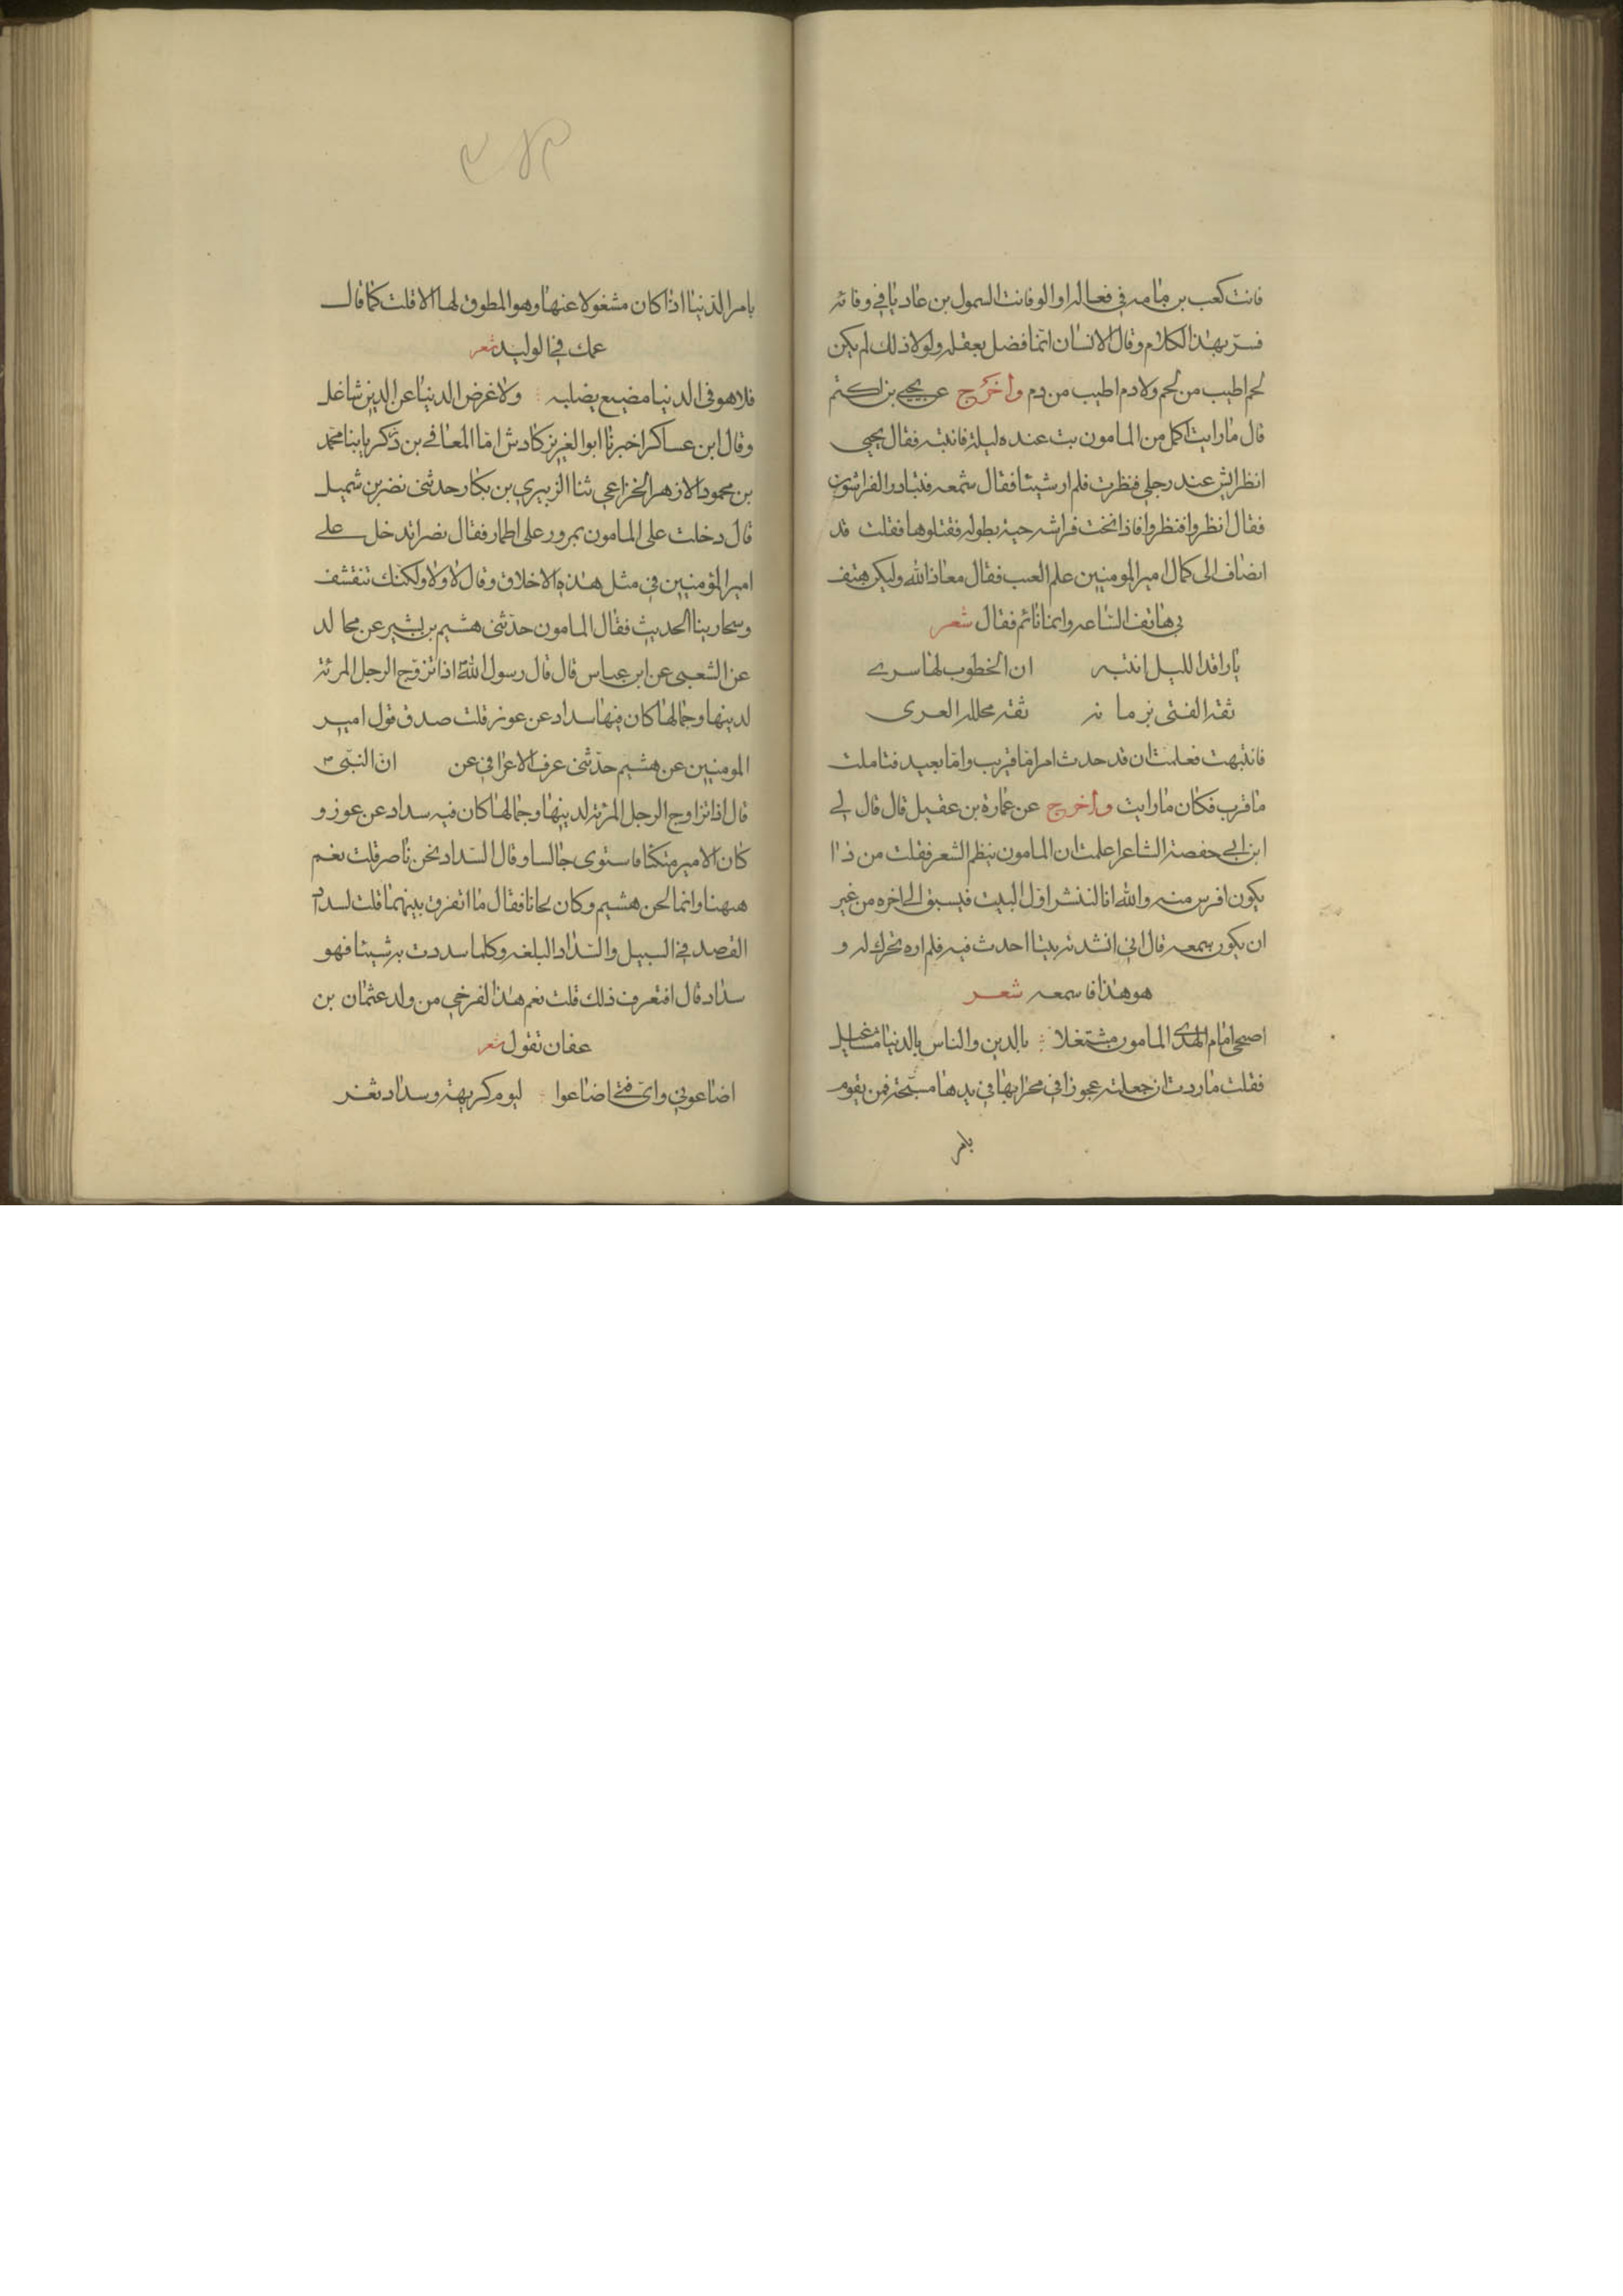 فانت كعب بن مامه في فعاله او الوفا فانت السمول بن عاديا في وفائه
فسر بهذا الكلام وقال الانسان انما فضل بعقله ولولا ذلك لم يكن
لحم اطيب من لحم ولا دم اطيب من دم واخرج عن يحيى بن اكثم
قال ما رايت اكمل من المامون بت عنده ليلة فانتبه فقال يحيى
انظر ايش عند رجلي فنظرت فلم ار شيئا فقال شمعه فتبادر الفراشون
فقال انظروا فنظروا فاذا تحت فراشه حية بطوله فقتلوها فقلت قد
انضاف الى كمال امير المومنين علم الغيب فقال معاذ الله وليكن هتف
بي هاتف الساعه وانا نائم فقال شعر
يا راقد الليل انتبه ان الخطوب لها سرى
ثقة الفتى بزمانه ثقة محللة العرى
فانتبهت فعلمت ان قد حدث امر اما قريب واما بعيد فتاملت
ما قرب فكان ما رايت واخرج عن عمارة بن عقيل قال قال لي
ابن ابي حفصة الشاعر اعلمت ان المامون ينظم الشعر فقلت من ذا
يكون افرس منه والله انا لننشد اول البيت فيسبق الى اخره من غير
ان يكون سمعه قال اني انشدته بيتا احدث فيه فلم اره تحرك له و
هو هذا فاسمعه شعر
اضحى امام الهدى المامون مشتغلا بالدين والناس بالدنيا مشاغيل
فقلت ما زدت ان جعلته عجوزا في محرابها في يدها مسبحة فمن يقوم
بامر
بامر الدنيا اذا كان مشغولا عنها وهو المطوق لها الا قلت كما قال
عمك في الوليد شعر
فلا هو في الدنيا مضيع نصليه ولا غرض الدنيا عن الدين شاغل
وقال ابن عساكر اخبرنا ابو العزيز كادش اما المعافي بن ذكريا بنا محمد
بن محمود الازهر الخزاعي ثنا الزبيري بن بكار حدثنى نضر بن شميل
قال دخلت على المامون بمرور على اطمار فقال نضر اتدخل على
امير المؤمنين في مثل هذه الاخلاق وقال لا ولا ولكنك تتقشف
وتجارينا الحديث فقال المامون حدثنى هشيم بن بشير عن مجالد
عن الشعبي عن ابن عباس قال قال رسول الله اذا تزوج الرجل المرئة
لدينها وجمالها كان فيها سداد عن عوز قلت صدق قول امير
المومنين عن هشيم حدثنى عوف الاعرابي عن ان النبى
قال اذا تزاوج الرجل المرئة لدينها وجمالها كان فيه سداد عن عوز و
كان الامير متكئا فاستوى جالسا وقال السداد لحن ناصر قلت نعم
ههنا وانما لحن هشيم وكان لحانا فقال ما الفرق بينهما قلت السداد
القصد في السبيل والسداد البلغه وكلما سددت به شيئا فهو
سداد قال افتعرف ذلك قلت نعم هذا الفرخي من ولد عثمان بن
عفان تقول شعر
اضاعوني واى فتى اضاعوا ليوم كريهة وسداد ثغر